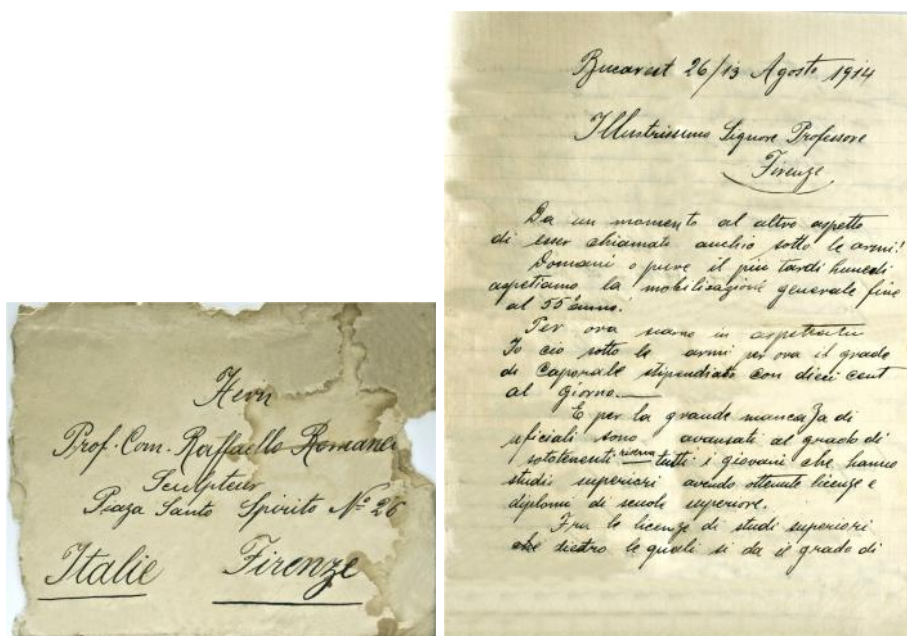 Herrn
Prof. Com. Raffaello Romanelli
Sculpteur
Piaza Santo Spirito No 26
Italie Firenze
Bucarest 26/13 Agosto 1914
Illustrissimo Signore Professore
Firenze
Da un momento al altro aspetto
di esser chiamato anchio sotto le armi!
Domani o pure il piu tardi lunedi
aspetiamo la mobilicazione generale fine
al 55 anno.
Per ora siamo in
Io cio sotto le armi per ora il grado
di Caporale stipendiato con dieci cent
al giorno.—
E per la grande mancaza di
uficiali sono avansati al grado di
sototenenti riserva tutti i giovani che hanno
studii superiori avendo ottenute licenze e
diplomi di scuole superiore.
Fra le licenze di studi superiori
dietro le quali si da il grado di